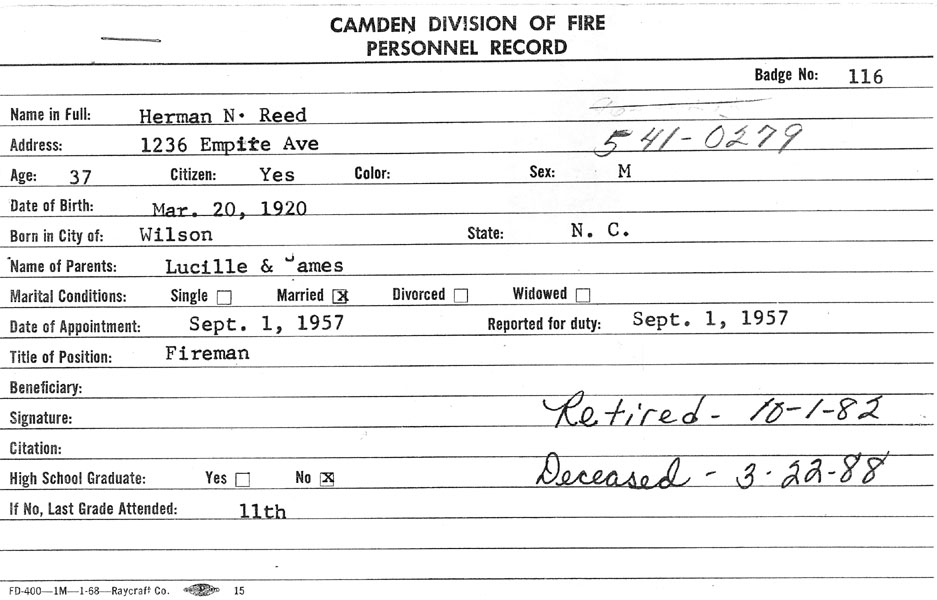 CAMDEN DIVISION OF FIRE
PERSONNEL RECORD
Badge No: 116
Name in Full: Herman N. Reed
Address: 1236 Empire Ave 541-0279
Age: 37 Citizen: Yes Color: Sex: M
Date of Birth: Mar. 20, 1920
Born in City of: Wilson State: N. C.
Name of Parents: Lucille & James
Marital Conditions: Single ☐ Married ☒ Divorced ☐ Widowed ☐
Date of Appointment: Sept. 1, 1957 Reported for duty: Sept. 1, 1957
Title of Position: Fireman
Beneficiary:
Signature: Retired - 10-1-82
Citation:
High School Graduate: Yes ☐ No ☒ Deceased - 3-22-88
If No, Last Grade Attended: 11th
FD-400—1M—1-68—Raycraft Co. 15